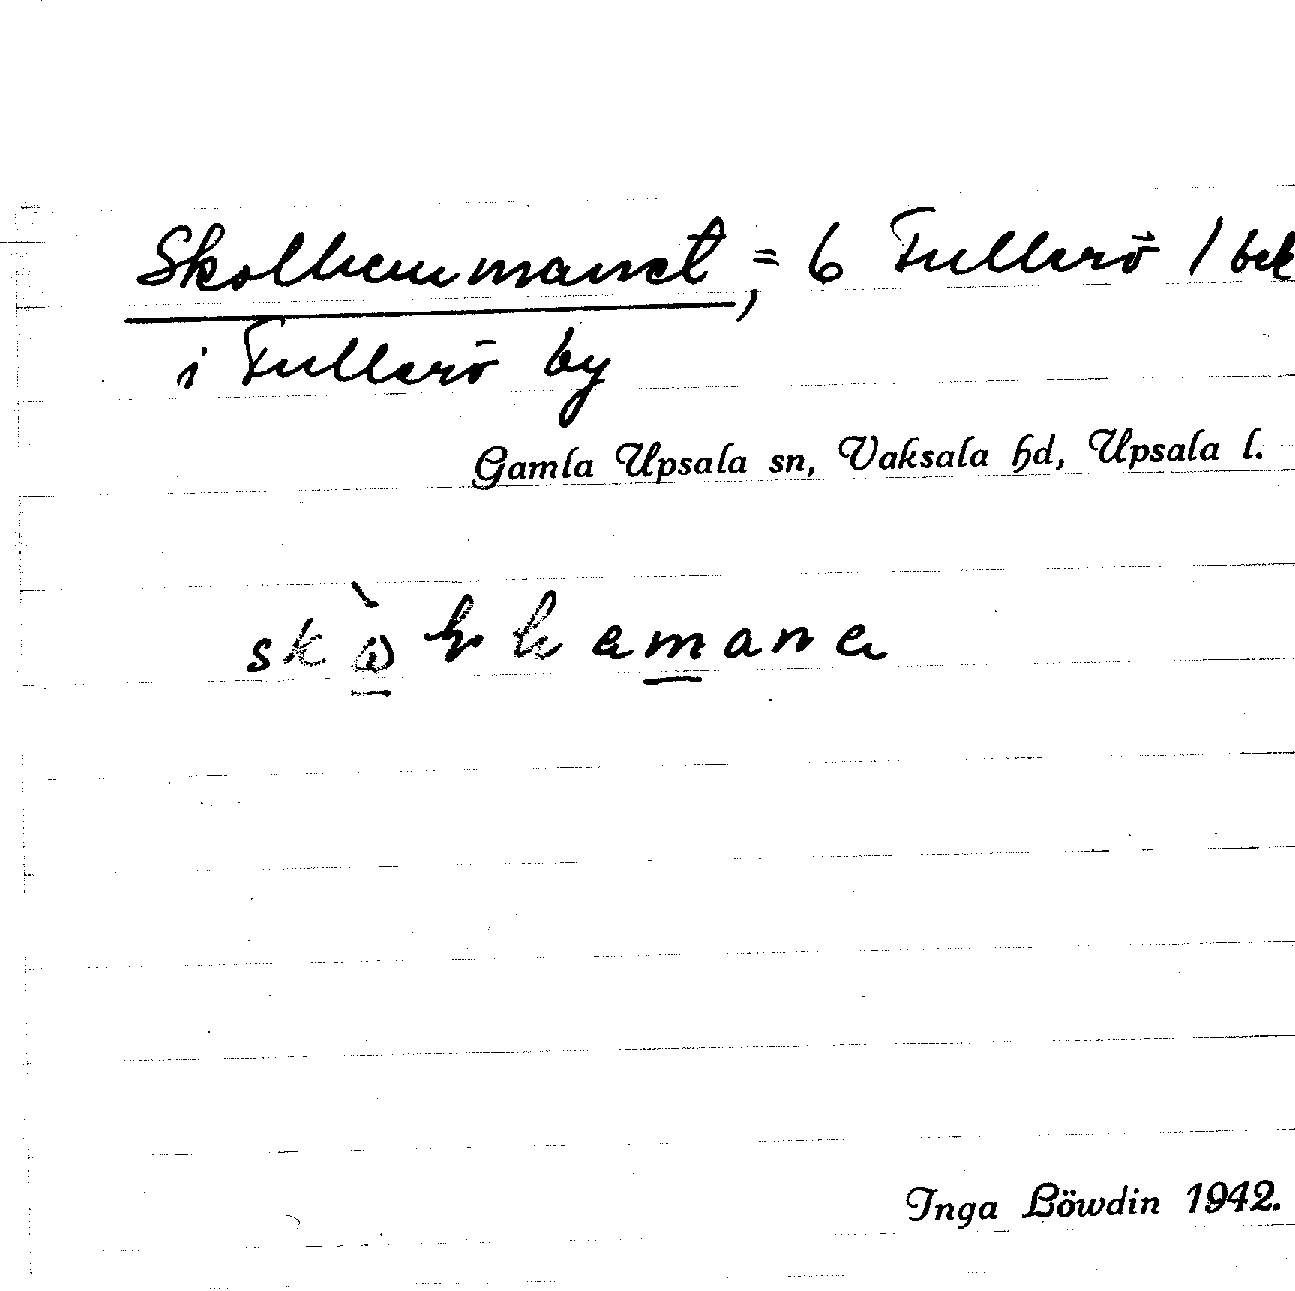 Skolhemmanet, = 6 Fullerö / bek
i Fullerö by
Gamla Upsala sn, Vaksala hd, Upsala l.
Inga Löwdin 1942.